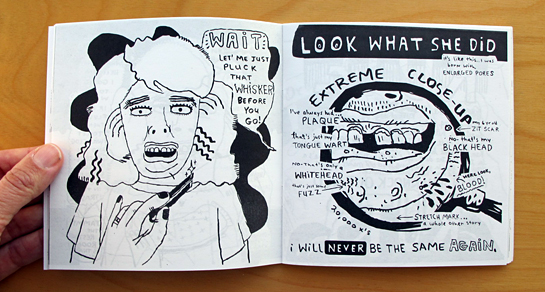 WAIT
LET ME JUST
PLUCK
THAT
WHISKER
BEFORE
YOU
GO!
LOOK WHAT SHE DID
it's like this.. I was
born with
ENLARGED PORES
EXTREME CLOSE-UP
I've always had
PLAQUE
that's just my
TONGUE WART
NO-that's only a
WHITEHEAD
that's just
FUZZ
ZIT SCAR
NO-that's my
BLACK HEAD
BLOOD!
STRETCH MARK...
a whole other story
20,000 X's
i WILL NEVER BE THE SAME AGAIN.